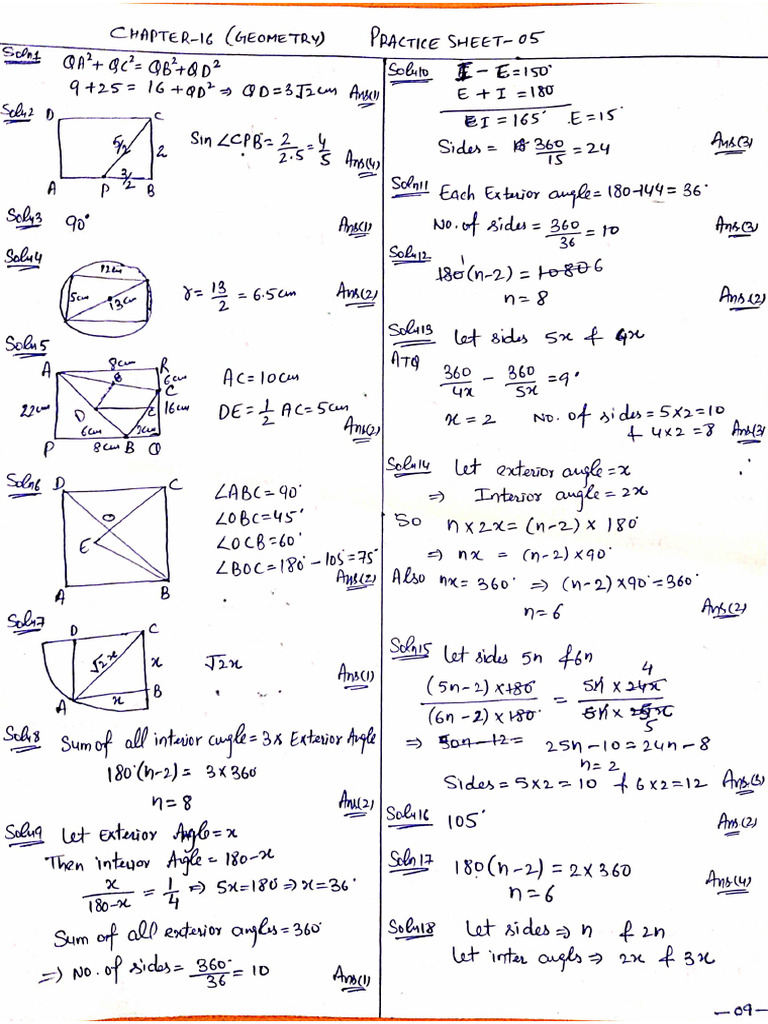 CHAPTER-16 (GEOMETRY) PRACTICE SHEET-05
Soln1
QA²+QC²=QB²+QD²
9+25=16+QD² ⇒ QD=3√2cm Ans(1)
Soln2
D C
5/2 2
A P 3/2 B
Sin∠CPB=2/2.5=4/5 Ans(4)
Soln3 90° Ans(1)
Soln4
12cm
5cm 13cm
r=13/2=6.5cm Ans(2)
Soln5
8cm
A R
B 6cm
C
22cm D E 16cm
6cm 2cm
P 8cm B Q
AC=10cm
DE=1/2 AC=5cm
Ans(2)
Soln6
D C
O
E
A B
∠ABC=90°
∠OBC=45°
∠OCB=60°
∠BOC=180°-105°=75°
Ans(2)
Soln7
D C
√2x x
A x B
√2x Ans(1)
Soln8 Sum of all interior angle=3x Exterior Angle
180°(n-2)= 3x360°
n=8 Ans(2)
Soln9 Let Exterior Angle=x
Then interior Angle=180-x
x/180-x=1/4 ⇒ 5x=180 ⇒ x=36°
Sum of all exterior angles=360°
⇒ No. of sides=360°/36=10 Ans(1)
Soln10 I-E=150°
E+I=180
I=165° E=15°
Sides=360/15=24 Ans(3)
Soln11 Each Exterior angle=180-144=36°
No. of sides=360/36=10 Ans(3)
Soln12
1
180(n-2)=1080 6
n=8 Ans(2)
Soln13 Let sides 5x & 4x
ATQ
360/4x-360/5x=9°
x=2 No. of sides=5x2=10
& 4x2=8 Ans(3)
Soln14 Let exterior angle=x
⇒ Interior angle=2x
So nx2x=(n-2)x180°
⇒ nx=(n-2)x90°
Also nx=360° ⇒ (n-2)x90°=360°
n=6 Ans(2)
Soln15 Let sides 5n & 6n
4
(5n-2)x180/(6n-2)x180=5n x 24x/6n x 25x
5
⇒ 30n-12= 25n-10=24n-8
n=2
Sides=5x2=10 & 6x2=12 Ans(3)
Soln16 105° Ans(2)
Soln17 180(n-2)=2x360
n=6 Ans(4)
Soln18 Let sides ⇒ n & 2n
Let inter angls ⇒ 2x & 3x
-09-